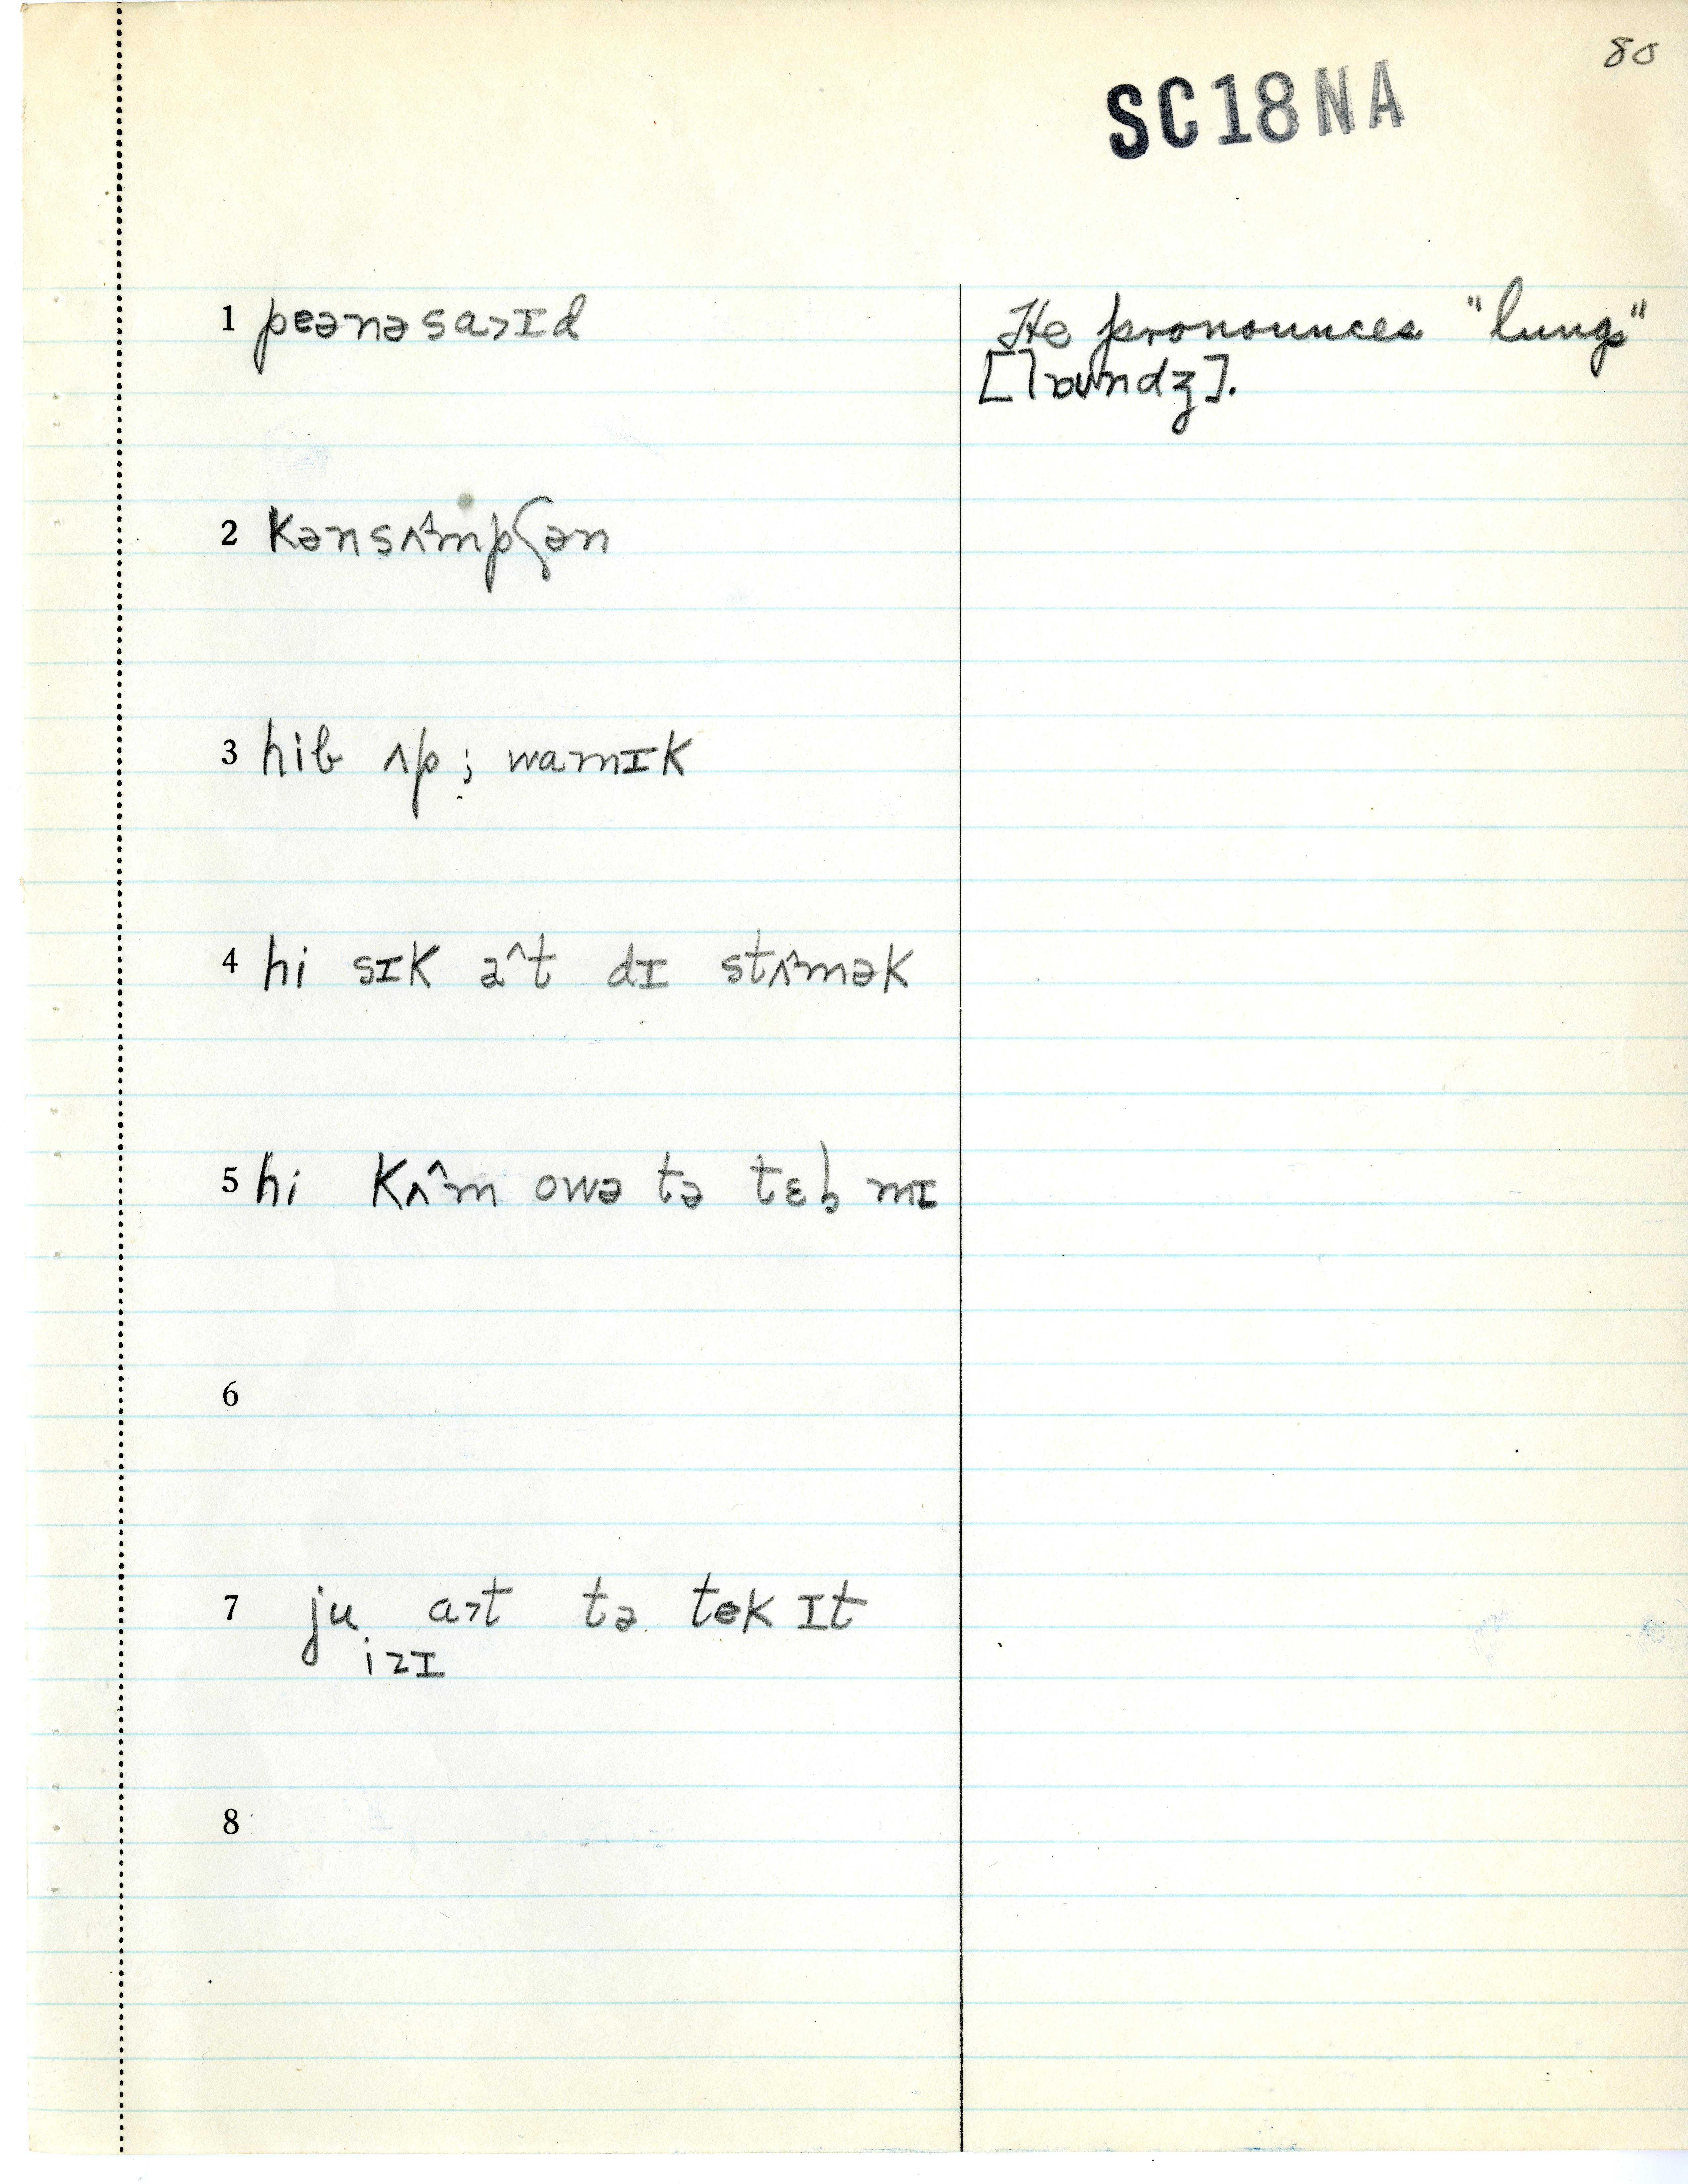 80
SC18NA
1 peənəsa˃ɪd
He pronounces "lungs"
[laʊndʒ].
2 kənsʌ^mpʃən
3 hib ʌp; wamɪk
4 hi sɪk a^t dɪ stʌ^mək
5 hi kʌ^m owə tə tɛb̥ mɪ
6
7 ju a˃t tə tek ɪt
izɪ
8